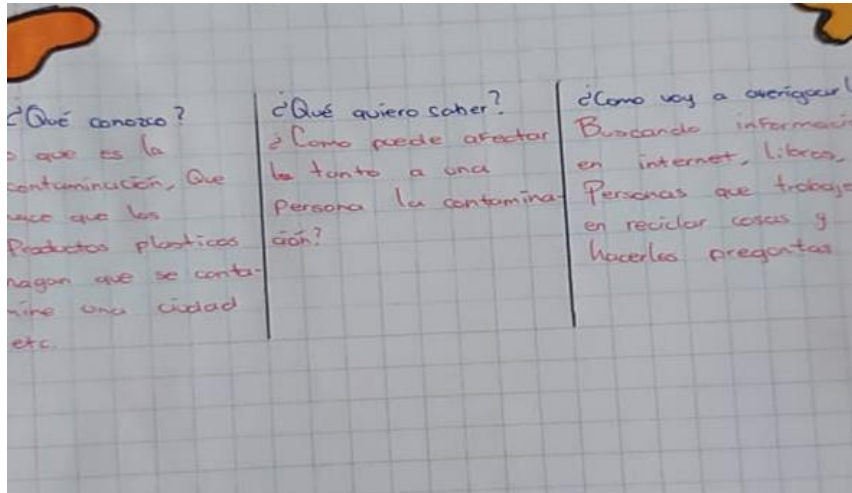 ¿Qué conozco?
que es la
contaminación, Que
hace que los
Productos plasticos
hagan que se conta-
mine una ciudad
etc.
¿Qué quiero saber?
¿Como puede afectar
tanto a una
persona la contamina-
ción?
¿Como voy a averigaur
Buscando informació
en internet, libros,
Personas que trabaje
en reciclar cosas y
hacerles preguntas